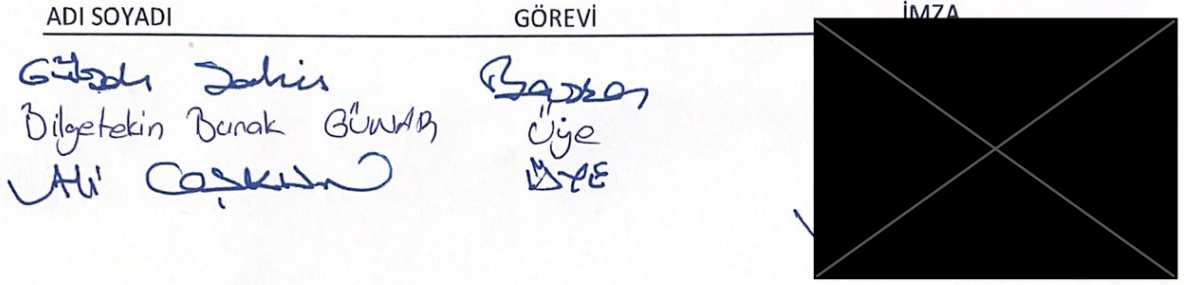 ADI SOYADI GÖREVİ İMZA
Şahin Başkan
Bilgetekin Burak GÜNAR Üye
Ali Coşkun ÜYE